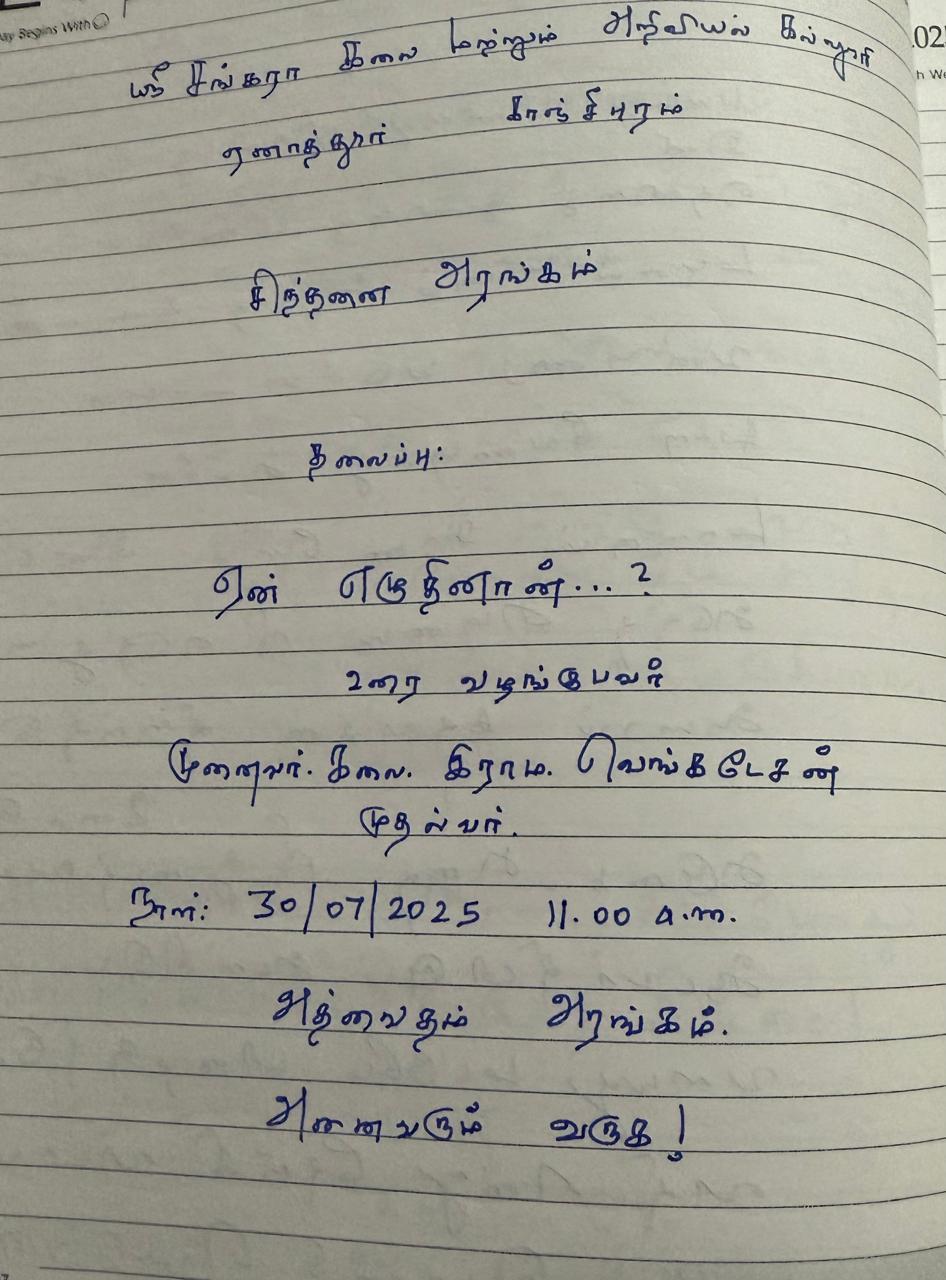 ay Begins With
02
h We
ஸ்ரீ சங்கரா கலை மற்றும் அறிவியல் கல்லூரி
ஏனாத்தூர் காஞ்சிபுரம்
சிந்தனை அரங்கம்
தலைப்பு:
ஏன் எழுதினான்...?
உரை வழங்குபவர்
முனைவர். கலை. இராம. வெங்கடேசன்
முதல்வர்.
நாள்: 30/07/2025 11.00 a.m.
அத்வைதம் அரங்கம்.
அனைவரும் வருக!